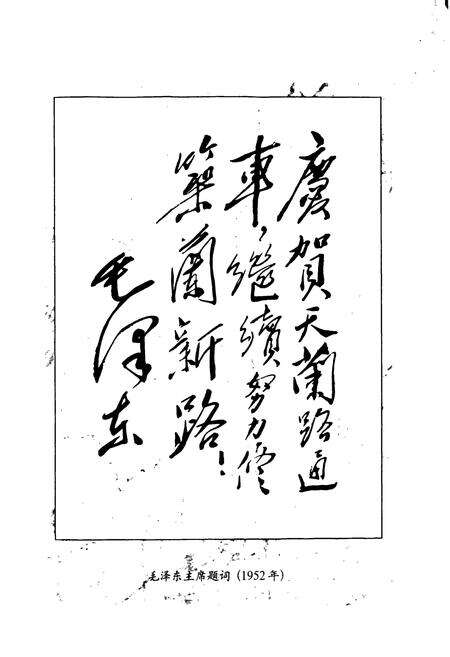 慶賀天蘭路通
車,繼續努力修
築蘭新路!
毛澤东
毛泽东主席题词(1952年)